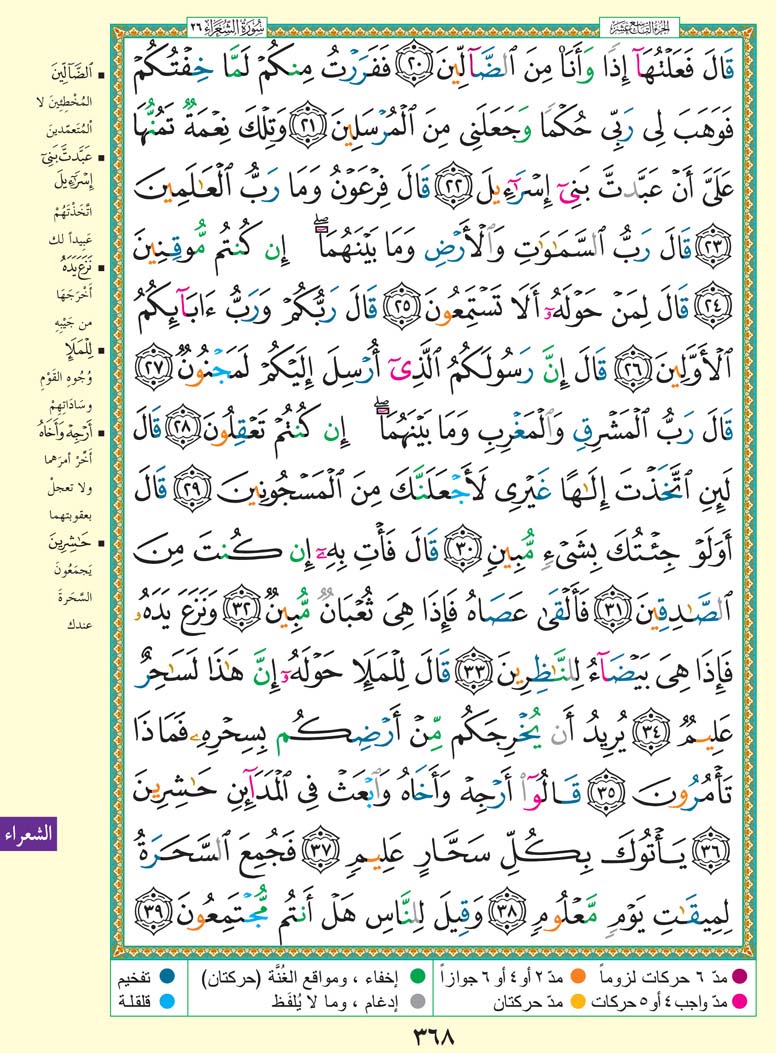 الجزء التاسع عشر
سورة الشعراء ٢٦
قَالَ فَعَلْتُهَآ إِذًا وَأَنَا۠ مِنَ ٱلضَّآلِّينَ ٢٠ فَفَرَرْتُ مِنكُمْ لَمَّا خِفْتُكُمْ
فَوَهَبَ لِى رَبِّى حُكْمًا وَجَعَلَنِى مِنَ ٱلْمُرْسَلِينَ ٢١ وَتِلْكَ نِعْمَةٌ تَمُنُّهَا
عَلَىَّ أَنْ عَبَّدتَّ بَنِىٓ إِسْرَٰٓءِيلَ ٢٢ قَالَ فِرْعَوْنُ وَمَا رَبُّ ٱلْعَٰلَمِينَ
٢٣ قَالَ رَبُّ ٱلسَّمَٰوَٰتِ وَٱلْأَرْضِ وَمَا بَيْنَهُمَآ ۖ إِن كُنتُم مُّوقِنِينَ
٢٤ قَالَ لِمَنْ حَوْلَهُۥٓ أَلَا تَسْتَمِعُونَ ٢٥ قَالَ رَبُّكُمْ وَرَبُّ ءَابَآئِكُمُ
ٱلْأَوَّلِينَ ٢٦ قَالَ إِنَّ رَسُولَكُمُ ٱلَّذِىٓ أُرْسِلَ إِلَيْكُمْ لَمَجْنُونٌ ٢٧
قَالَ رَبُّ ٱلْمَشْرِقِ وَٱلْمَغْرِبِ وَمَا بَيْنَهُمَآ ۖ إِن كُنتُمْ تَعْقِلُونَ ٢٨ قَالَ
لَئِنِ ٱتَّخَذْتَ إِلَٰهًا غَيْرِى لَأَجْعَلَنَّكَ مِنَ ٱلْمَسْجُونِينَ ٢٩ قَالَ
أَوَلَوْ جِئْتُكَ بِشَىْءٍ مُّبِينٍ ٣٠ قَالَ فَأْتِ بِهِۦٓ إِن كُنتَ مِنَ
ٱلصَّٰدِقِينَ ٣١ فَأَلْقَىٰ عَصَاهُ فَإِذَا هِىَ ثُعْبَانٌ مُّبِينٌ ٣٢ وَنَزَعَ يَدَهُۥ
فَإِذَا هِىَ بَيْضَآءُ لِلنَّٰظِرِينَ ٣٣ قَالَ لِلْمَلَإِ حَوْلَهُۥٓ إِنَّ هَٰذَا لَسَٰحِرٌ
عَلِيمٌ ٣٤ يُرِيدُ أَن يُخْرِجَكُم مِّنْ أَرْضِكُم بِسِحْرِهِۦ فَمَاذَا
تَأْمُرُونَ ٣٥ قَالُوٓا۟ أَرْجِهْ وَأَخَاهُ وَٱبْعَثْ فِى ٱلْمَدَآئِنِ حَٰشِرِينَ
٣٦ يَأْتُوكَ بِكُلِّ سَحَّارٍ عَلِيمٍ ٣٧ فَجُمِعَ ٱلسَّحَرَةُ
لِمِيقَٰتِ يَوْمٍ مَّعْلُومٍ ٣٨ وَقِيلَ لِلنَّاسِ هَلْ أَنتُم مُّجْتَمِعُونَ ٣٩
▪ ٱلضَّآلِّينَ
المُخْطِئِينَ لا
المُتَعمّدينَ
▪ عَبَّدتَّ بَنِىٓ
إِسْرَٰٓءِيلَ
اتَّخَذْتَهُمْ
عَبِيداً لك
▪ نَزَعَ يَدَهُ
أَخْرَجَهَا
من جَيْبِهِ
▪ لِلْمَلَإِ
وُجُوهِ القَوْمِ
وسَادَاتِهِمْ
▪ أَرْجِهْ وَأَخَاهُ
أَخّرْ أمرَهما
ولا تعجلْ
بعقوبتهما
▪ حَٰشِرِينَ
يَجمَعُونَ
السَّحَرةَ
عندك
الشعراء
مدّ ٦ حركات لزوماً
مدّ ٢ أو ٤ أو ٦ جوازاً
إخفاء ، ومواقع الغُنَّة (حركتان)
تفخيم
مدّ واجب ٤ أو ٥ حركات
مدّ حركتان
إدغام ، وما لا يُلفَظ
قلقلة
٣٦٨